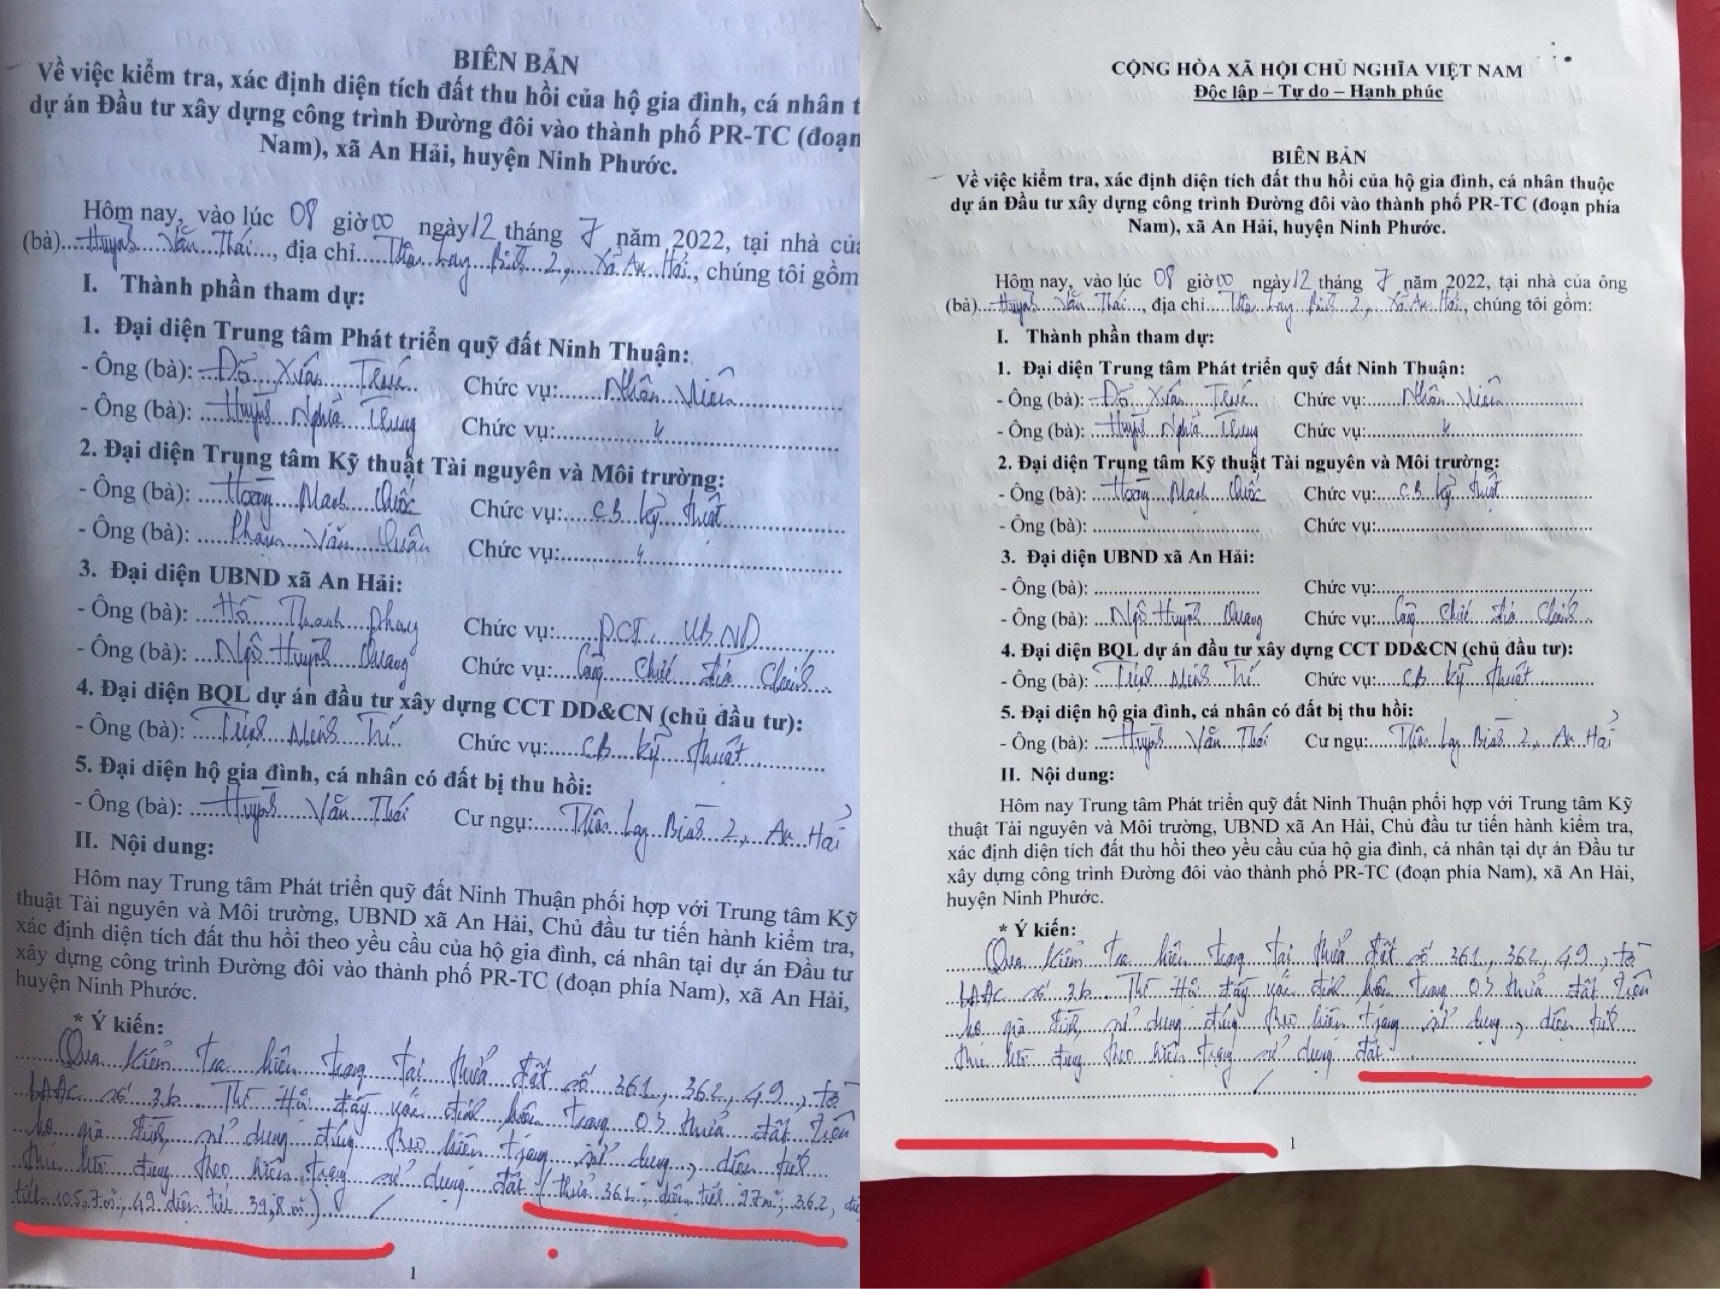 BIÊN BẢN
Về việc kiểm tra, xác định diện tích đất thu hồi của hộ gia đình, cá nhân t
dự án Đầu tư xây dựng công trình Đường đôi vào thành phố PR-TC (đoạn
Nam), xã An Hải, huyện Ninh Phước.
Hôm nay, vào lúc 08 giờ 00 ngày 12 tháng 7 năm 2022, tại nhà củ
(bà) Huỳnh Văn Thái, địa chỉ Thôn Long Bình 2, Xã An Hải, chúng tôi gồm
I. Thành phần tham dự:
1. Đại diện Trung tâm Phát triển quỹ đất Ninh Thuận:
- Ông (bà): Đỗ Xuân Trúc Chức vụ: Nhân Viên
- Ông (bà): Huỳnh Nghĩa Trung Chức vụ:
2. Đại diện Trung tâm Kỹ thuật Tài nguyên và Môi trường:
- Ông (bà): Hoàng Mạnh Quốc Chức vụ: CB kỹ thuật
- Ông (bà): Phạm Văn Quân Chức vụ:
3. Đại diện UBND xã An Hải:
- Ông (bà): Hồ Thanh Phong Chức vụ: PCT. UBND
- Ông (bà): Ngô Huỳnh Quang Chức vụ: Công Chức địa Chính
4. Đại diện BQL dự án đầu tư xây dựng CCT DD&CN (chủ đầu tư):
- Ông (bà): Trịnh Minh Trí Chức vụ: CB kỹ thuật
5. Đại diện hộ gia đình, cá nhân có đất bị thu hồi:
- Ông (bà): Huỳnh Văn Thái Cư ngụ: Thôn Long Bình 2, An Hải
II. Nội dung:
Hôm nay Trung tâm Phát triển quỹ đất Ninh Thuận phối hợp với Trung tâm Kỹ
thuật Tài nguyên và Môi trường, UBND xã An Hải, Chủ đầu tư tiến hành kiểm tra,
xác định diện tích đất thu hồi theo yêu cầu của hộ gia đình, cá nhân tại dự án Đầu tư
xây dựng công trình Đường đôi vào thành phố PR-TC (đoạn phía Nam), xã An Hải,
huyện Ninh Phước.
* Ý kiến:
Qua kiểm tra hiện trạng tại thửa đất số 361, 362, 49, tờ
số 3b. Thì Hội đồng xác định hiện trạng 03 thửa đất trên
hộ gia đình sử dụng đúng theo hiện trạng sử dụng, diện tích
thu hồi đúng theo hiện trạng sử dụng đất (thửa 361, diện tích 27m²; 362, di
tích 105,7m²; 49 diện tích 39,8m²)
1
CỘNG HÒA XÃ HỘI CHỦ NGHĨA VIỆT NAM
Độc lập – Tự do – Hạnh phúc
BIÊN BẢN
Về việc kiểm tra, xác định diện tích đất thu hồi của hộ gia đình, cá nhân thuộc
dự án Đầu tư xây dựng công trình Đường đôi vào thành phố PR-TC (đoạn phía
Nam), xã An Hải, huyện Ninh Phước.
Hôm nay, vào lúc 08 giờ 00 ngày 12 tháng 7 năm 2022, tại nhà của ông
(bà) Huỳnh Văn Thái, địa chỉ Thôn Long Bình 2, Xã An Hải, chúng tôi gồm:
I. Thành phần tham dự:
1. Đại diện Trung tâm Phát triển quỹ đất Ninh Thuận:
- Ông (bà): Đỗ Xuân Trúc Chức vụ: Nhân Viên
- Ông (bà): Huỳnh Nghĩa Trung Chức vụ:
2. Đại diện Trung tâm Kỹ thuật Tài nguyên và Môi trường:
- Ông (bà): Hoàng Mạnh Quốc Chức vụ: CB kỹ thuật
- Ông (bà): Chức vụ:
3. Đại diện UBND xã An Hải:
- Ông (bà): Chức vụ:
- Ông (bà): Ngô Huỳnh Quang Chức vụ: Công Chức địa Chính
4. Đại diện BQL dự án đầu tư xây dựng CCT DD&CN (chủ đầu tư):
- Ông (bà): Trịnh Minh Trí Chức vụ: CB kỹ thuật
5. Đại diện hộ gia đình, cá nhân có đất bị thu hồi:
- Ông (bà): Huỳnh Văn Thái Cư ngụ: Thôn Long Bình 2, An Hải
II. Nội dung:
Hôm nay Trung tâm Phát triển quỹ đất Ninh Thuận phối hợp với Trung tâm Kỹ
thuật Tài nguyên và Môi trường, UBND xã An Hải, Chủ đầu tư tiến hành kiểm tra,
xác định diện tích đất thu hồi theo yêu cầu của hộ gia đình, cá nhân tại dự án Đầu tư
xây dựng công trình Đường đôi vào thành phố PR-TC (đoạn phía Nam), xã An Hải,
huyện Ninh Phước.
* Ý kiến:
Qua kiểm tra hiện trạng tại thửa đất số 361, 362, 49, tờ
số 3b. Thì Hội đồng xác định hiện trạng 03 thửa đất trên
hộ gia đình sử dụng đúng theo hiện trạng sử dụng, diện tích
thu hồi đúng theo hiện trạng sử dụng đất
1